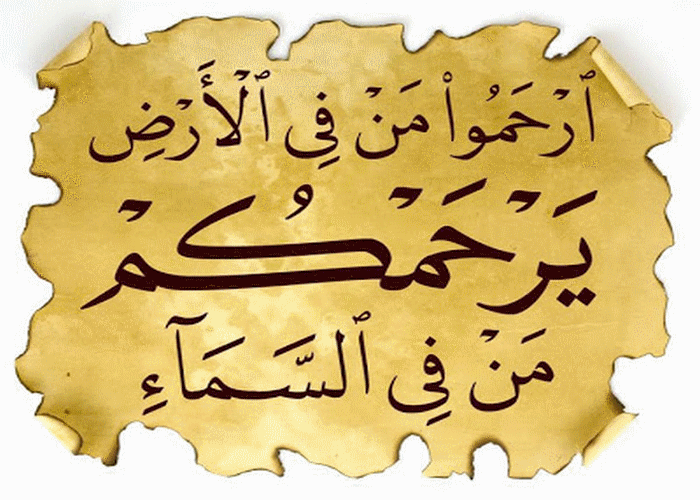 ٱرْحَمُوا۟ مَنْ فِى ٱلْأَرْضِ
يَرْحَمْكُمْ
مَنْ فِى ٱلسَّمَآءِ